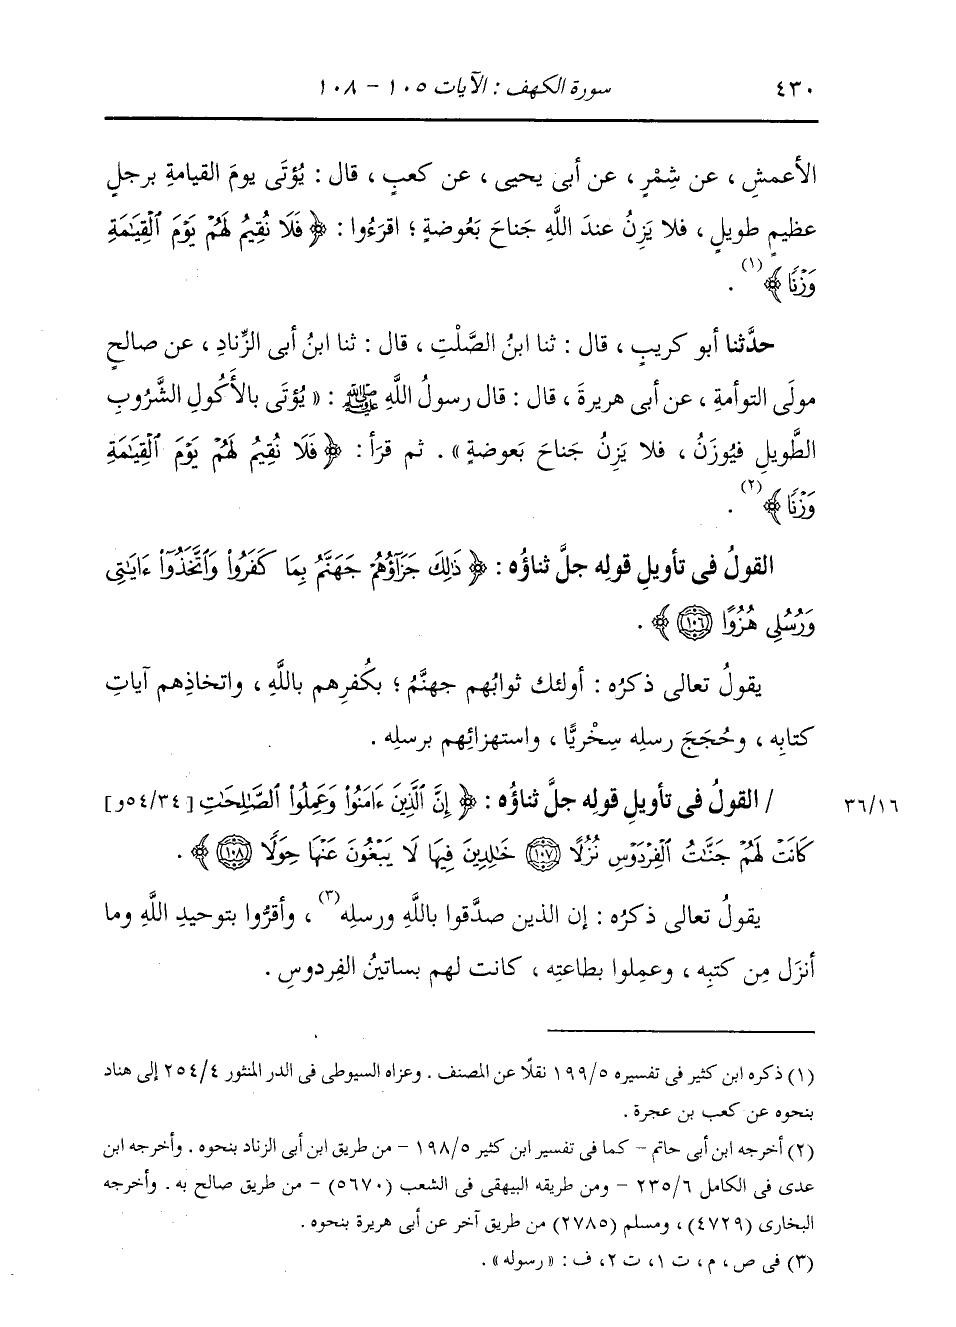 ٤٣٠ سورة الكهف : الآيات ١٠٥ - ١٠٨
الأعمشِ ، عن شِمْرٍ ، عن أبى يحيى ، عن كعبٍ ، قال : يُؤتَى يومَ القيامةِ برجلٍ
عظيمٍ طويلٍ ، فلا يَزِنُ عندَ اللَّهِ جَناحَ بَعُوضةٍ ؛ اقرَءُوا : ﴿ فَلَا نُقِيمُ لَهُمْ يَوْمَ ٱلْقِيَٰمَةِ
وَزْنًا ﴾(١) .
حدَّثنا أبو كريبٍ ، قال : ثنا ابنُ الصَّلْتِ ، قال : ثنا ابنُ أبى الزِّنادِ ، عن صالحٍ
مولَى التوأمةِ ، عن أبى هريرةَ ، قال : قال رسولُ اللَّهِ ﷺ : « يُؤتَى بالأَكُولِ الشَّرُوبِ
الطَّويلِ فيُوزَنُ ، فلا يَزِنُ جَناحَ بَعوضةٍ » . ثم قرَأ : ﴿ فَلَا نُقِيمُ لَهُمْ يَوْمَ ٱلْقِيَٰمَةِ
وَزْنًا ﴾(٢) .
القولُ فى تأويلِ قولِه جلَّ ثناؤُه : ﴿ ذَٰلِكَ جَزَآؤُهُمْ جَهَنَّمُ بِمَا كَفَرُوا۟ وَٱتَّخَذُوٓا۟ ءَايَٰتِى
وَرُسُلِى هُزُوًا ١٠٦ ﴾ .
يقولُ تعالى ذكرُه : أولئك ثوابُهم جهنَّمُ ؛ بكُفرِهم باللَّهِ ، واتخاذِهم آياتِ
كتابِه ، وحُجَجَ رسلِه سِخْريًّا ، واستهزائِهم برسلِه .
٣٦/١٦ / القولُ فى تأويلِ قولِه جلَّ ثناؤُه : ﴿ إِنَّ ٱلَّذِينَ ءَامَنُوا۟ وَعَمِلُوا۟ ٱلصَّٰلِحَٰتِ [٥٤/٣٤و]
كَانَتْ لَهُمْ جَنَّٰتُ ٱلْفِرْدَوْسِ نُزُلًا ١٠٧ خَٰلِدِينَ فِيهَا لَا يَبْغُونَ عَنْهَا حِوَلًا ١٠٨ ﴾ .
يقولُ تعالى ذكرُه : إن الذين صدَّقوا باللَّهِ ورسلِه(٣) ، وأقرُّوا بتوحيدِ اللَّهِ وما
أنزَل مِن كتبِه ، وعمِلوا بطاعتِه ، كانت لهم بساتينُ الفِردوسِ .
(١) ذكره ابن كثير فى تفسيره ١٩٩/٥ نقلًا عن المصنف . وعزاه السيوطى فى الدر المنثور ٢٥٤/٤ إلى هناد
بنحوه عن كعب بن عجرة .
(٢) أخرجه ابن أبى حاتم - كما فى تفسير ابن كثير ١٩٨/٥ - من طريق ابن أبى الزناد بنحوه . وأخرجه ابن
عدى فى الكامل ٢٣٥/٦ - ومن طريقه البيهقى فى الشعب (٥٦٧٠) - من طريق صالح به . وأخرجه
البخارى (٤٧٢٩) ، ومسلم (٢٧٨٥) من طريق آخر عن أبى هريرة بنحوه .
(٣) فى ص ، م ، ت ١، ت ٢، ف : « رسوله » .